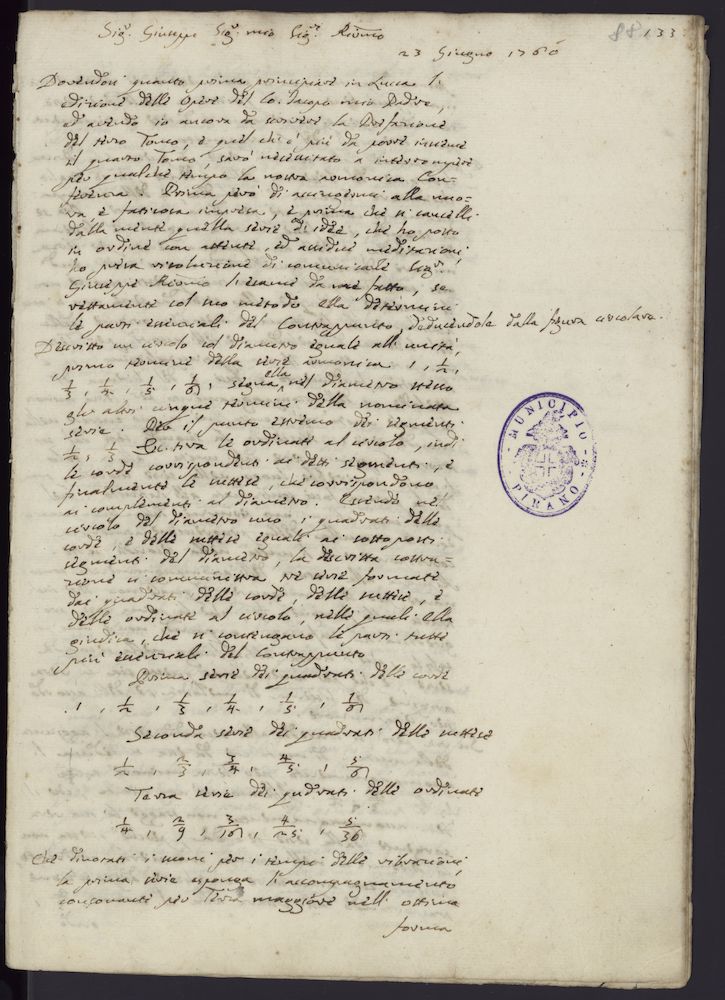 Sig.r Giuseppe Sig.r mio Sig.r Riv.mo
88 133
23 Giugno 1760
Dovendosi quanto prima principiare in Lucca l'
edizione delle opere del Co. Jacopo mio Padre,
ed avendo io ancora da scrivere la Prefazione
del terzo Tomo, e quel che è più da porre insieme
il quarto Tomo, sarò necessitato a interrompere
per qualche tempo la nostra armonica Con-
ferenza. Prima però di accingermi alla nuo-
va, e faticosa impresa, e prima che si cancelli
dalla mente quella serie di idee, che ho posto
in ordine con attente, ed assidue meditazioni
ho presa risoluzione di comunicarle Sig.r
Giuseppe Riv.mo l'esame da me fatto, se
rettamente col suo metodo ella determini
le parti essenziali del Contrappunto, deducendole dalla figura circolare.
Descritto un circolo col diametro eguale all'unità,
primo termine della serie armonica 1, 1/2,
1/3, 1/4, 1/5, 1/6, segna ella nel diametro stesso
gli altri cinque termini della nominata
serie. Per il punto estremo dei segmenti
1/2, 1/3 &c. tira le ordinate al circolo, indi
le corde corrispondenti ai detti segmenti, e
finalmente le suttese, che corrispondono
ai complementi al diametro. Essendo nel
circolo del diametro uno i quadrati delle
corde, e delle suttese eguali ai sottoposti
segmenti del diametro, la descritta costru=
zione ci somministra tre serie formate
dai quadrati delle corde, delle suttese, e
delle ordinate al circolo, nelle quali ella
giudica, che si contengano le parti tutte
più essenziali del Contrappunto
Prima serie dei quadrati delle corde
1, 1/2, 1/3, 1/4, 1/5, 1/6
Seconda serie dei quadrati delle suttese
1/2, 2/3, 3/4, 4/5, 5/6
Terza serie dei quadrati delle ordinate
1/4, 2/9, 3/16, 4/25, 5/36
Che dinotati i suoni per i tempi delle vibrazioni
la prima serie esponga l'accompagnamento
consonante per Terza maggiore nell'ottima
forma
MUNICIPIO
PIRANO